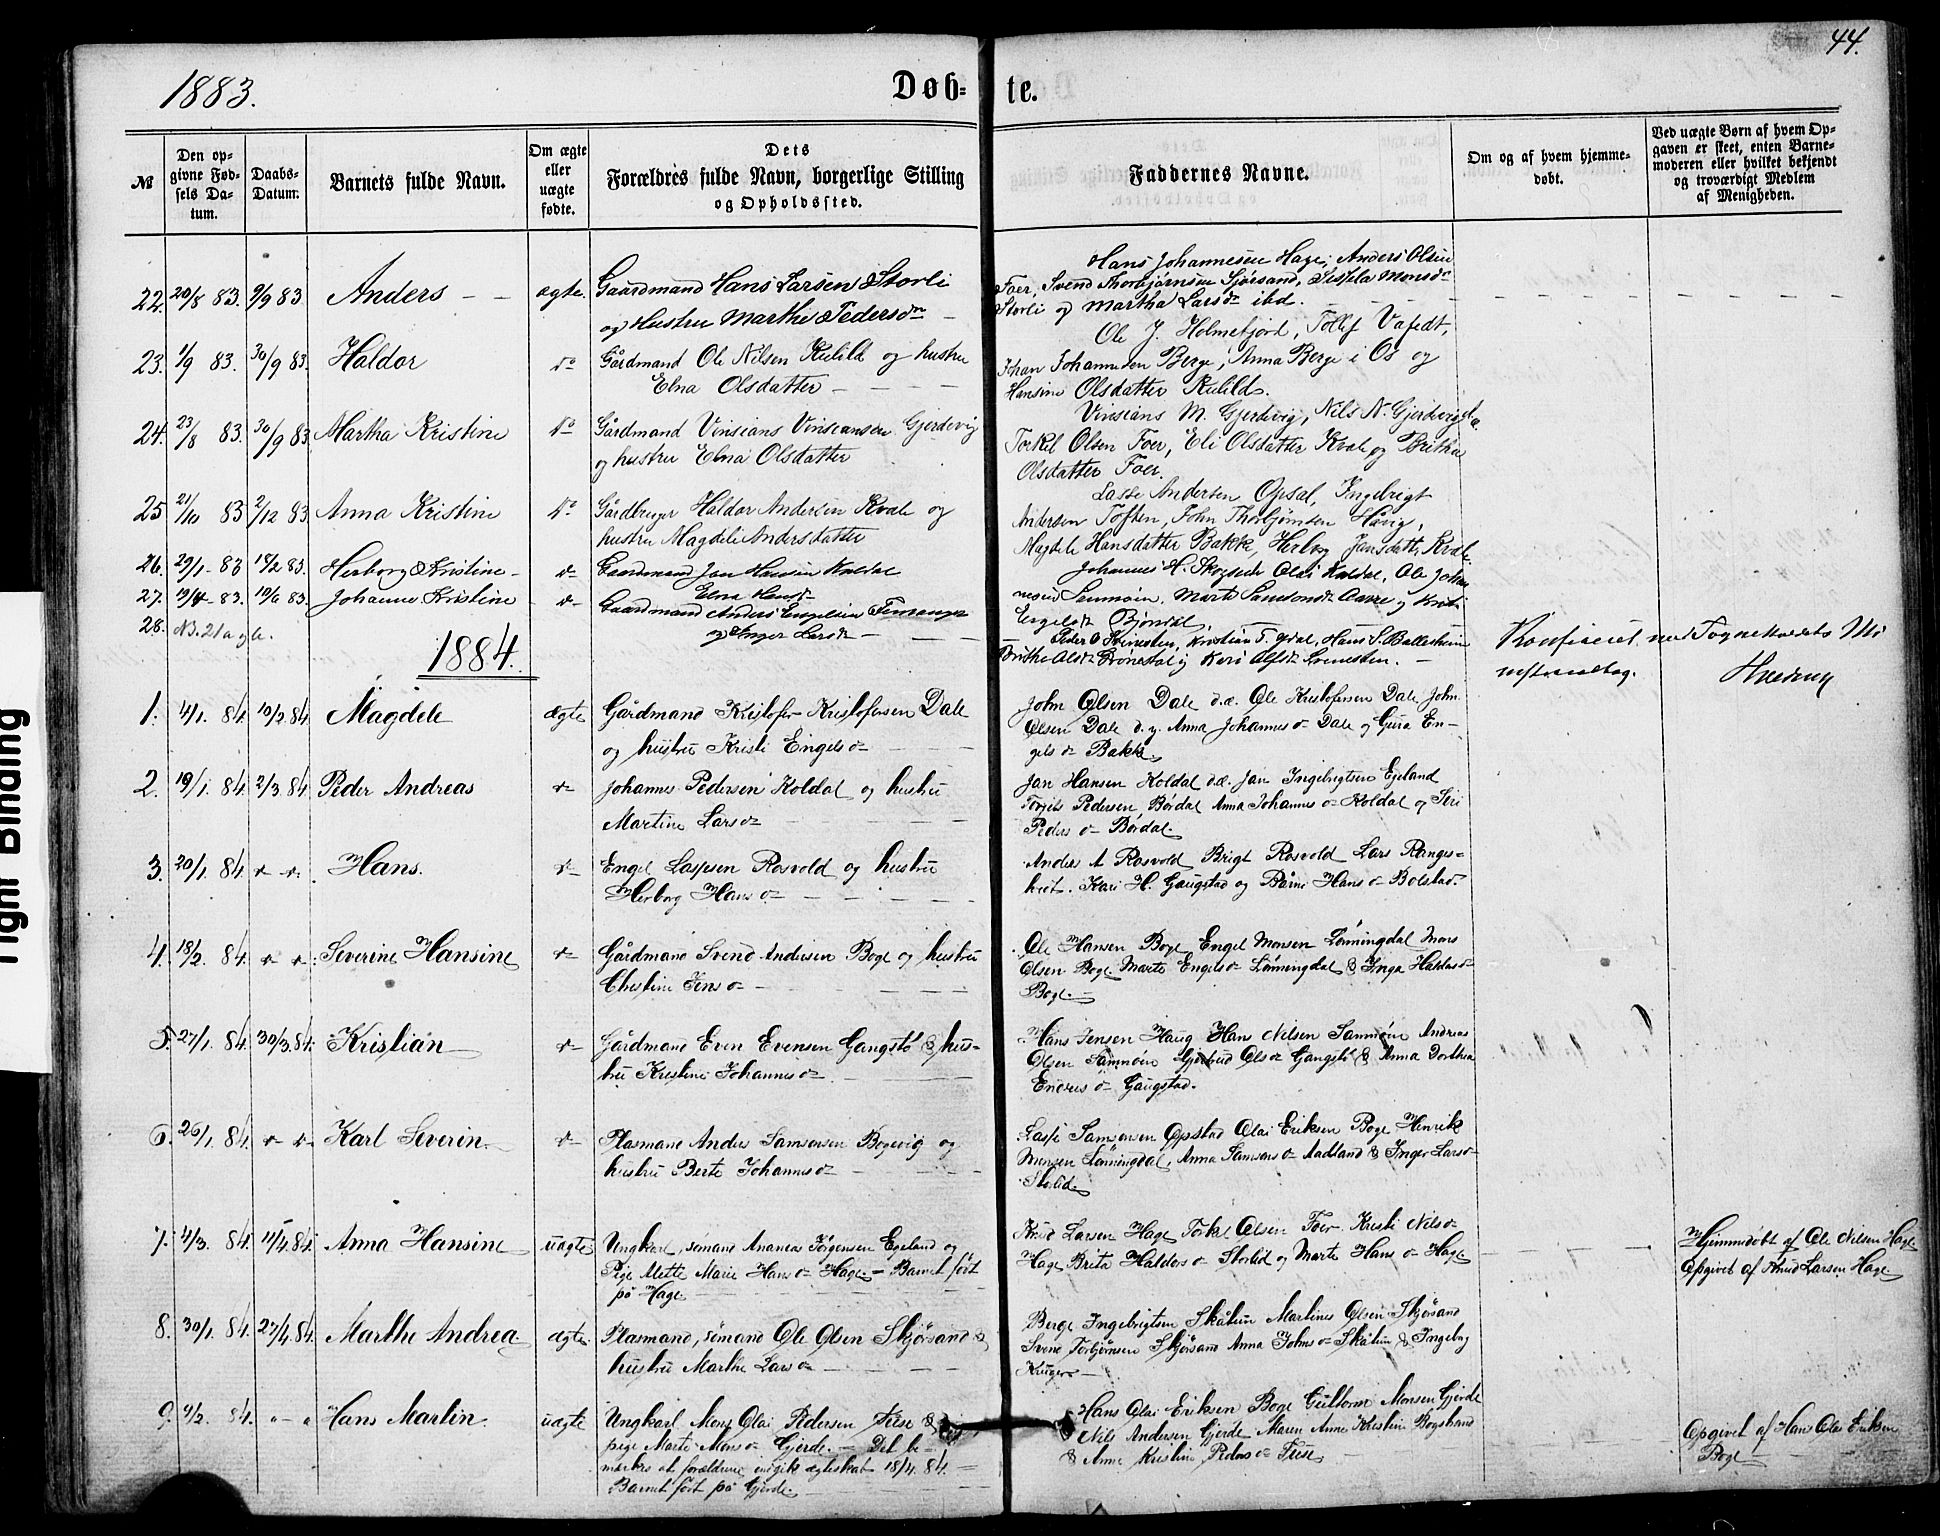 44.
1883.
Døb- te.
№
Den op-
givne Fød-
sels Da-
tum.
Daabs-
Datum.
Barnets fulde Navn.
Om ægte
eller
uægte
fødte.
Dets
Forældres fulde Navn, borgerlige Stilling
og Opholdssted.
Faddernes Navne.
Om og af hvem hjemme-
døbt.
Ved uægte Børn af hvem Op-
gaven er skeet, enten Barne-
moderen eller hvilket bekjendt
og troværdigt Medlem
af Menigheden.
22. 20/8 83. 9/9 83. Anders ægte. Gaardmand Hans Larsen Storli
og Hustru Marthe Pedersdn
Hans Johannesen Hage, Anders Olsen
Foer, Svend Thorbjørnsen Sjørsand, Sissela Monsdn
Storli og Martha Larsdn ibd.
23. 1/9 83. 30/9 83. Haldor do Gårdmand Ole Nilsen Kulild og hustru
Elna Olsdatter
Ole J. Holmefjord, Tollef Vafedt,
Johan Johannesen Berge, Anna Berge i Os og
Hansine Olsdatter Kulild.
24. 23/8 83. 30/9 83. Martha Kristine do Gårdmand Vinsians Vinseansen Gjerdevig
og hustru Elna Olsdatter
Vinsians M. Gjerdevig, Nils N. Gjerdevig
Torkel Olsen Foer, Eli Olsdatter Kvale og Britha
Olsdatter Foer.
25 21/10 83 2/12 83. Anna Kristine do Gårdbruger Haldor Andersen Kvale og
hustru Magdeli Andersdatter
Lasse Andersen Opsal, Ingebrigt
Andersen Toften, John Thorbjørnsen Håvig,
Magdele Hansdatter Bakke, Herborg Jansdatt. Kvale
26. 29/1 83 18/2 83. Herborg Kristine d- Gaardmand Jan Hansen Koldal
Elna Hansdr
Johannes H. Skogseide Olai Koldal, Ole Johan-
nesen Sammøen, Marte Samsonsdr Aavre og Kristi
Engelsdr Bjørdal
27. 19/4 83. 10/6 83. Johanne Kristine d- Gaardmand Anders Engelsen Temanger
og Inger Larsdr
Peder O Svinesten, Kristian T. Ødal, Hans S. Ballesheim
Brithe Olsdr Grønestad og Kari Olsdr Svinesten.
28. NB. 21 a gl.
Konfereret med Sognekaldets Mi-
nisterialbog.
1884.
1. 4/1. 84. 10/2. 84. Magdele ægte Gårdmand Kristofer Kristofersen Dale
og hustru Kristi Engels d-
John Olsen Dale d.æ. Ole Kristofersen Dale, John
Olsen Dale d. y. Anna Johannes d- Dale og Gura En-
gels d- Bakke
2. 19/1. 84. 2/3. 84. Peder Andreas d- Johannes Pedersen Koldal og hustru
Martine Lars d-
Jan Hansen Koldal d.æ. Jan Ingebrigtsen Egeland
Torgils Pedersen Børdal Anna Johannes d- Koldal og Siri
Peders d- Børdal.
3. 20/1. 84. d- d-. Hans. d- Engel Lassen Rosvold og hustru
Herborg Hans d-
Anders A Rosvold Brigt Rosvold Lars Ranges-
tveit. Kari H. Gaugstad og Barne Hans d- Bolstad.
4. 18/2. 84. d- d-. Severine Hansine d- Gårdmand Svend Andersen Boge og hustru
Chrestine Jens d-
Ole Hansen Boge Engel Monsen Lønningdal Mons
Olsen Boge Marte Engels d- Lønningdal & Inga Haldors d-
Boge.
5. 27/1. 84. 30/3. 84. Kristian d- Gårdmand Even Evensen Gangstø & hus-
tru Kristine Johannes d-
Hans Jensen Haug Hans Nilsen Sammøen Andreas
Olsen Sammøen Gjertrud Ols d- Gangstø & Anna Dorthea
Endres d- Gaugstad.
6. 26/1. 84. d- d-. Karl Severin d- Plasmand Anders Samsonsen Bogevig og
hustru Berte Johannes d-
Lasse Samsonsen Opstad Olai Eriksen Boge Henrik
Monsen Lønningdal, Anna Samsons d- Aadland & Inger Lars d-
Storlid.
7. 4/3. 84. 11/4. 84. Anna Hansine uægte Ungkarl, sømand Ananias Jørgensen Egeland og
Pige Mette Marie Hans d- Hage. — Barnet født
på Hage
Knud Larsen Hage Torkel Olsen Foer Kristi Nils d-
Hage Brita Haldors d- Storlid og Marte Hans d- Hage
Hjemmedøbt af Ole Nilsen Hage
Opgivet af Knud Larsen Hage.
8. 30/1. 84. 27/4. 84. Marthe Andrea ægte Plasmand, sømand Ole Olsen Skjørsand &
hustru Marthe Lars d-
Berge Ingebrigtsen Skåtun Martines Olsen Skjørsand
Svend Torbjørnsen Skjørsand Anna Johns d- Skåtun & Ingeborg
Krüger
9. 9/2. 84. Hans Martin uægte Ungkarl Mons Olai Pedersen Tuse &
pige Marte Mons d- Gjerde. — Det be-
mærkes at forældrene indgik ægteskab 18/4. 84.
Barnet født på Gjerde.
Hans Olai Eriksen Boge Guttorm Monsen Gjerde
Nils Andersen Gjerde Maren Anne Kristine Bogstrand
& Anne Kristine Peders d- Tuse
Opgivet af Hans Olai Eriksen
Boge
Tight Binding